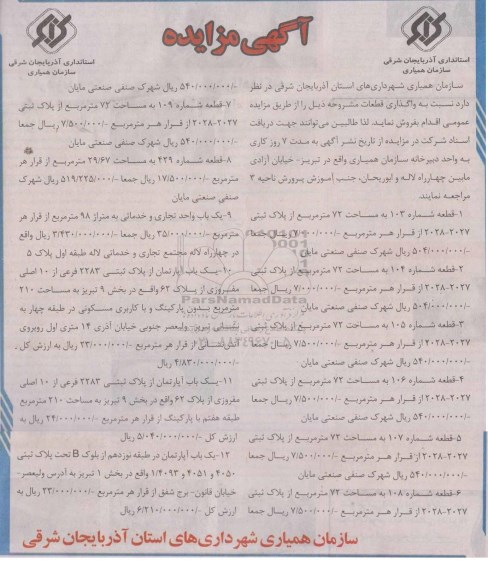 آگهی مزایده
استانداری آذربایجان شرقی
سازمان همیاری
استانداری آذربایجان شرقی
سازمان همیاری
سازمان همیاری شهرداری‌های استان آذربایجان شرقی در نظر
دارد نسبت به واگذاری قطعات مشروحه ذیل را از طریق مزایده
عمومی اقدام بفروش نماید. لذا طالبین می‌توانند جهت دریافت
اسناد شرکت در مزایده از تاریخ نشر آگهی به مدت ۷ روز کاری
به واحد دبیرخانه سازمان همیاری واقع در تبریز- خیابان آزادی
مابین چهارراه لاله و ابوریحان، جنب آموزش پرورش ناحیه ۳
مراجعه نمایند
۱-قطعه شماره ۱۰۳ به مساحت ۷۲ مترمربع از پلاک ثبتی
۲۰۲۷-۲۰۲۸ از قرار هر مترمربع -/۷/۰۰۰/۰۰۰ ریال جمعا
-/۵۰۴/۰۰۰/۰۰۰ ریال شهرک صنفی صنعتی مایان
۲-قطعه شماره ۱۰۴ به مساحت ۷۲ مترمربع از پلاک ثبتی
۲۰۲۷-۲۰۲۸ از قرار هر مترمربع -/۷/۰۰۰/۰۰۰ ریال جمعا
-/۵۰۴/۰۰۰/۰۰۰ ریال شهرک صنفی صنعتی مایان
۳-قطعه شماره ۱۰۵ به مساحت ۷۲ مترمربع از پلاک ثبتی
۲۰۲۷-۲۰۲۸ از قرار هر مترمربع -/۷/۵۰۰/۰۰۰ ریال جمعا
-/۵۴۰/۰۰۰/۰۰۰ ریال شهرک صنفی صنعتی مایان
۴-قطعه شماره ۱۰۶ به مساحت ۷۲ مترمربع از پلاک ثبتی
۲۰۲۷-۲۰۲۸ از قرار هر مترمربع -/۷/۵۰۰/۰۰۰ ریال جمعا
-/۵۴۰/۰۰۰/۰۰۰ ریال شهرک صنفی صنعتی مایان
۵-قطعه شماره ۱۰۷ به مساحت ۷۲ مترمربع از پلاک ثبتی
۲۰۲۷-۲۰۲۸ از قرار هر مترمربع -/۷/۵۰۰/۰۰۰ ریال جمعا
-/۵۴۰/۰۰۰/۰۰۰ ریال شهرک صنفی صنعتی مایان
۶-قطعه شماره ۱۰۸ به مساحت ۷۲ مترمربع از پلاک ثبتی
۲۰۲۷-۲۰۲۸ از قرار هر مترمربع -/۷/۵۰۰/۰۰۰ ریال جمعا
-/۵۴۰/۰۰۰/۰۰۰ ریال شهرک صنفی صنعتی مایان
۷-قطعه شماره ۱۰۹ به مساحت ۷۲ مترمربع از پلاک ثبتی
۲۰۲۷-۲۰۲۸ از قرار هر مترمربع -/۷/۵۰۰/۰۰۰ ریال جمعا
-/۵۴۰/۰۰۰/۰۰۰ ریال شهرک صنفی صنعتی مایان
۸-قطعه شماره ۴۲۹ به مساحت ۲۹/۶۷ مترمربع از قرار هر
مترمربع -/۱۷/۵۰۰/۰۰۰ ریال جمعا -/۵۱۹/۲۲۵/۰۰۰ ریال شهرک
صنفی صنعتی مایان
۹-یک باب واحد تجاری و خدماتی به متراژ ۹۸ مترمربع از قرار هر
مترمربع -/۳۵/۰۰۰/۰۰۰ ریال جمعا -/۳/۴۳۰/۰۰۰/۰۰۰ ریال واقع
در چهارراه لاله مجتمع تجاری و خدماتی لاله طبقه اول پلاک ۵
۱۰-یک باب آپارتمان از پلاک ثبتی ۲۲۸۳ فرعی از ۱۰ اصلی
مفروزی از پلاک ۶۲ واقع در بخش ۹ تبریز به مساحت ۲۱۰
مترمربع بدون پارکینگ و با کاربری مسکونی در طبقه چهار به
نشانی تبریز-ولیعصر جنوبی خیابان آذری ۱۴ متری اول روبروی
آتش‌نشانی از قرار هر مترمربع -/۲۳/۰۰۰/۰۰۰ ریال به ارزش کل
-/۴/۸۳۰/۰۰۰/۰۰۰
۱۱-یک باب آپارتمان از پلاک ثبتی ۲۲۸۳ فرعی از ۱۰ اصلی
مفروزی از پلاک ۶۲ واقع در بخش ۹ تبریز به مساحت ۲۱۰ مترمربع
طبقه هفتم با پارکینگ از قرار هر مترمربع -/۲۴/۰۰۰/۰۰۰ ریال به
ارزش کل -/۵/۰۴۰/۰۰۰/۰۰۰ ریال
۱۲-یک باب آپارتمان در طبقه نوزدهم از بلوک B تحت پلاک ثبتی
۴۰۵۰ و ۴۰۵۱ و ۱/۴۰۹۳ واقع در بخش ۱ تبریز به آدرس ولیعصر-
خیابان قانون- برج شفق از قرار هر مترمربع -/۲۳/۰۰۰/۰۰۰ ریال به
ارزش کل -/۶/۲۱۰/۰۰۰/۰۰۰ ریال
سازمان همیاری شهرداری‌های استان آذربایجان شرقی
ParsNamadData